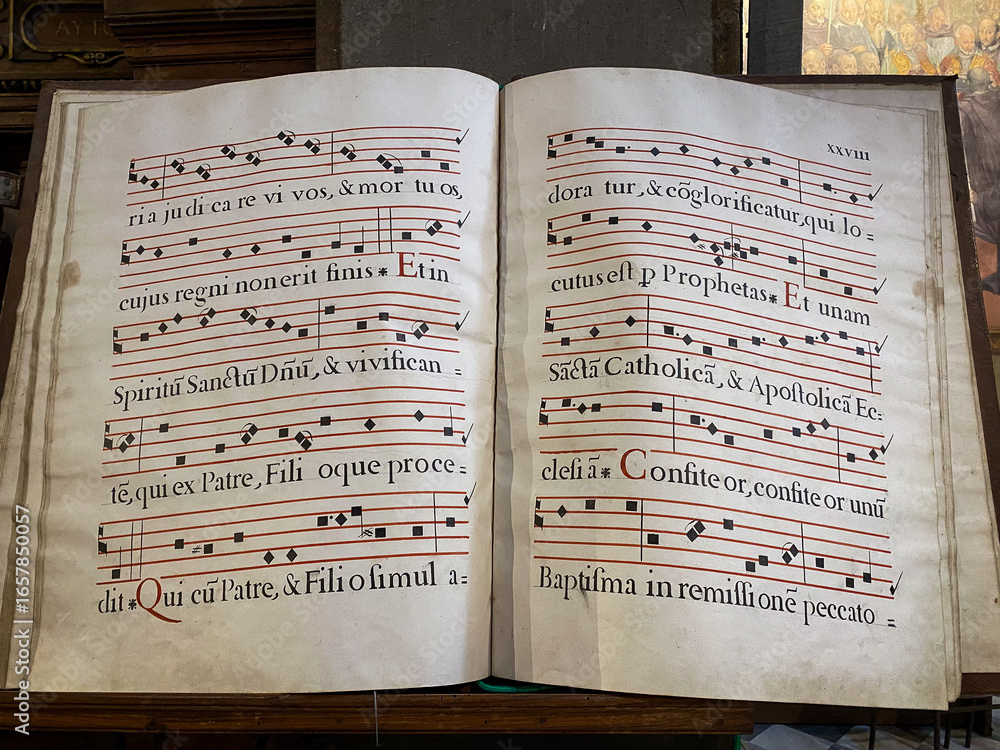 ria judicare vivos, & mor tuos,
cujus regni non erit finis * Et in
Spiritū Sanctū Dñū, & vivifican =
tē, qui ex Patre, Fili oque proce =
dit * Qui cū Patre, & Filio ſimul a =
xxviii
dora tur, & cõglorificatur, qui lo =
cutus eſt ꝑ Prophetas * Et unam
Sāctā Catholicā, & Apoſtolicā Ec =
cleſi ā * Confiteor, confiteor unū
Baptiſma in remiſſionē peccato =
Adobe Stock | #1657850057